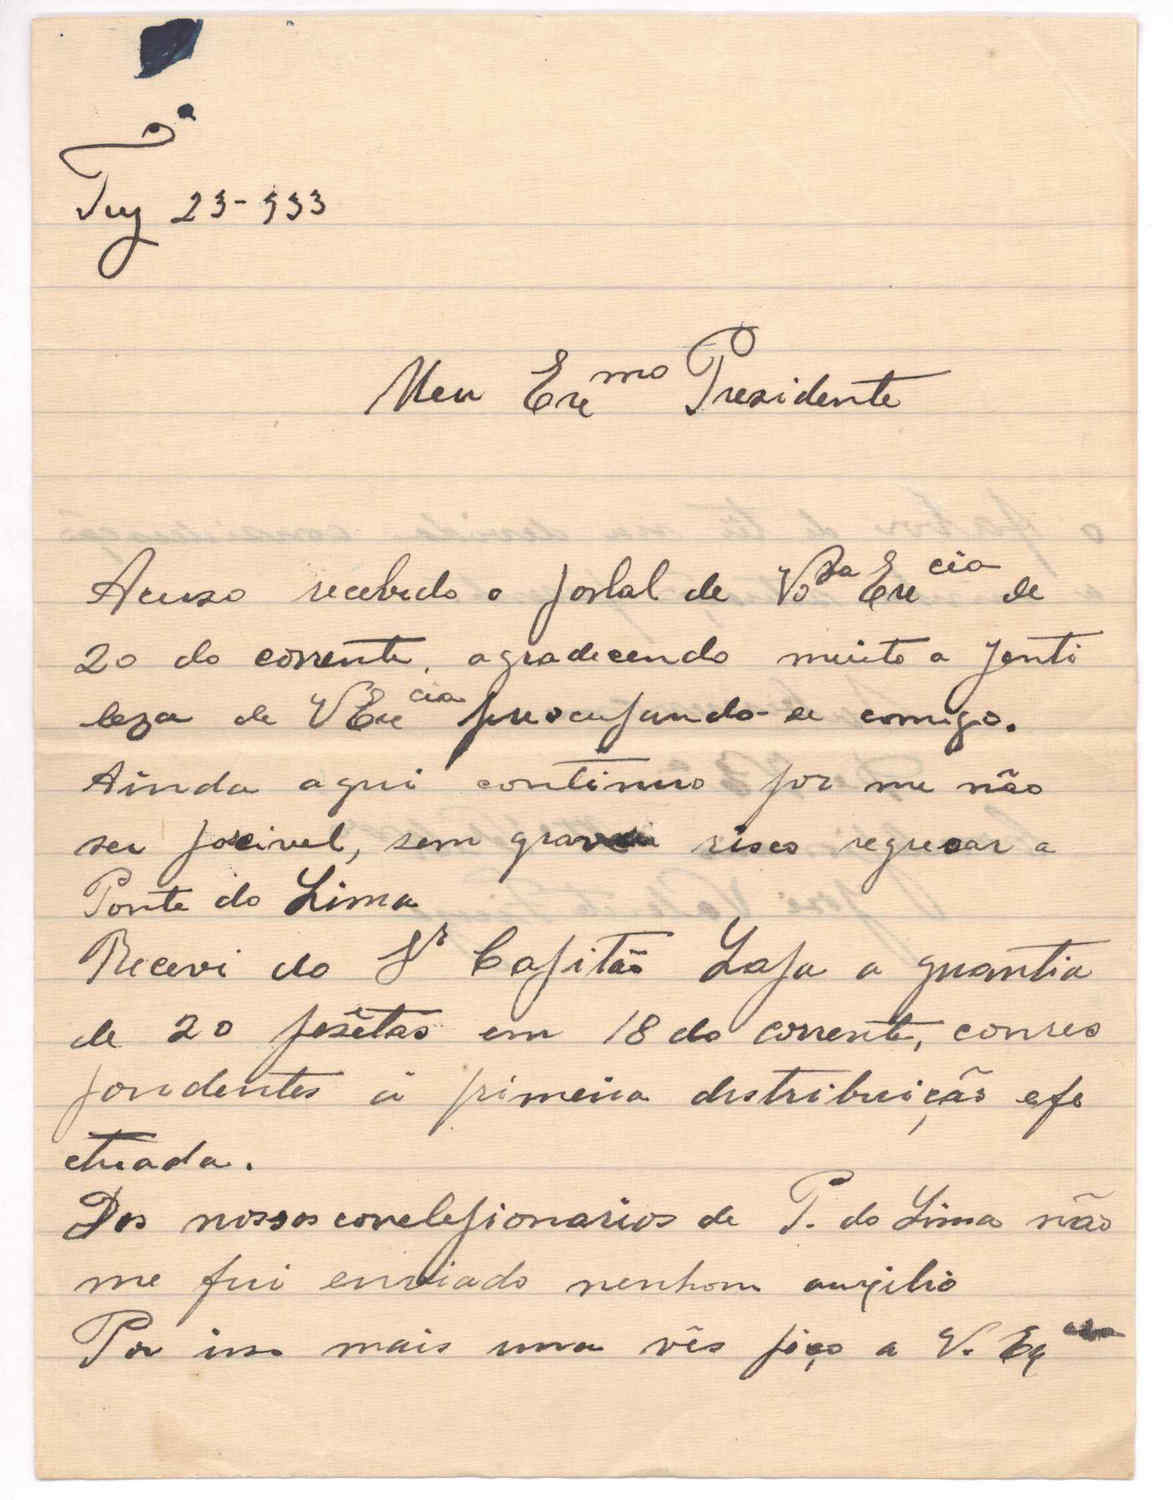 Tuy 23-933
Meu Exe^mo Presidente
Acuso recebido o postal de Vo^sa Exe^cia de
20 do corrente, agradecendo muito a jenti
leza de V Exe^cia preocupando-se comigo.
Ainda aqui continuo por me não
ser possivel, sem grave risco regressar a
Ponte do Lima
Recevi do S^r Capitão Lapa a quantia
de 20 pesêtas em 18 do corrente, conres
pondentes á primeira distribuição efe
ctuada.
Dos nossos correlepionarios de P. do Lima não
me fui enviado nenhom auxilio
Por isso mais uma vês piço a V. Ex^cia